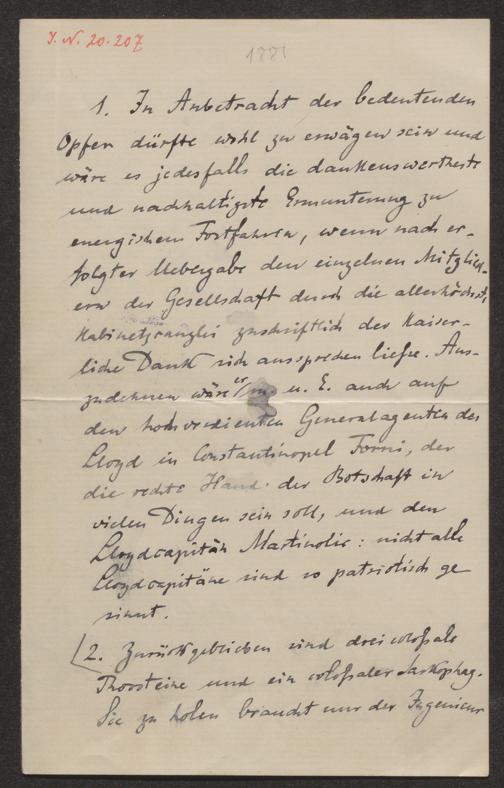 I. N. 20.207
1881
1. In Anbetracht der bedeutenden
Opfer dürfte wohl zu erwägen sein und
wäre es jedesfalls die dankenswertheste
und nachhaltigste Ermunterung zu
energischem Fortfahren, wenn nach er-
folgter Uebergabe den einzelnen Mitglied-
ern der Gesellschaft durch die allerhöchste
Kabinetskanzlei zuschriftlich der Kaiser-
liche Dank sich aussprechen ließe. Aus-
zudehnen wäre er m. E. auch auf
den hochverdienten Generalagenten des
Lloyd in Constantinopel Forni, der
die rechte Hand der Botschaft in
vielen Dingen sein soll, und den
Lloydcapitän Martinolic: nicht alle
Lloydcapitäne sind so patriotisch ge
sinnt.
2. Zurückgeblieben sind drei colossale
Thorsteine und ein colossaler Sarkophag.
Sie zu holen braucht nur der Ingenieur